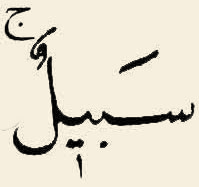 سَبِيلٌ ۚ